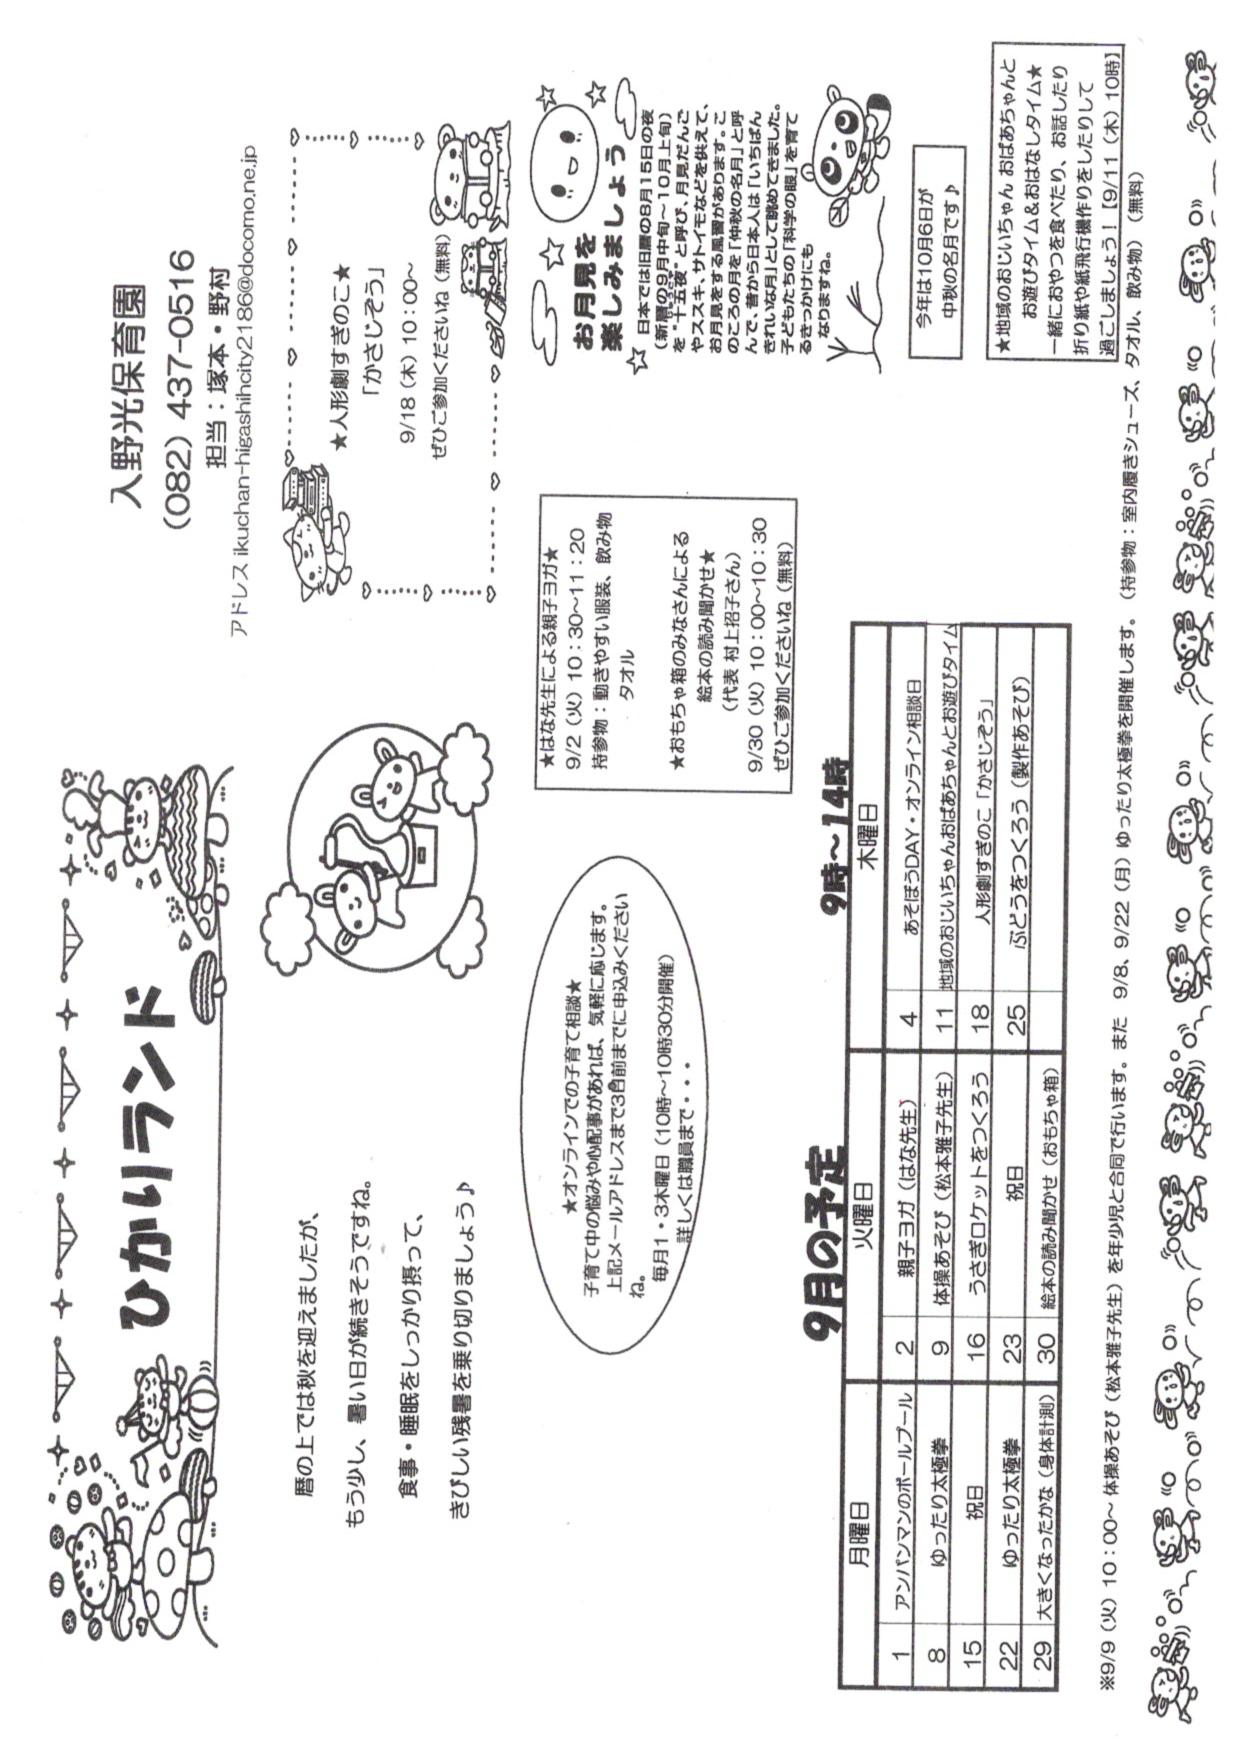 ひかりランド
入野光保育園
(082) 437-0516
担当：塚本・野村
アドレス ikuchan-higashihcity2186@docomo.ne.jp
暦の上では秋を迎えましたが、
もう少し、暑い日が続きそうですね。
食事・睡眠をしっかり摂って、
きびしい残暑を乗り切りましょう♪
★人形劇すぎのこ★
「かさじぞう」
9/18（木）10：00～
ぜひご参加くださいね（無料）
★オンラインでの子育て相談★
子育て中の悩みや心配事があれば、気軽に応じます。
上記メールアドレスまで3日前までに申込みください
ね。
毎月1・3木曜日（10時～10時30分開催）
詳しくは職員まで・・・
★はな先生による親子ヨガ★
9/2（火）10：30～11：20
持参物：動きやすい服装、飲み物
タオル
★おもちゃ箱のみなさんによる
絵本の読み聞かせ★
（代表 村上招子さん）
9/30（火）10：00～10：30
ぜひご参加くださいね（無料）
お月見を
楽しみましょう
日本では旧暦の8月15日の夜
（新暦の9月中旬～10月上旬）
を“十五夜”と呼び、月見だんご
やススキ、サトイモなどを供えて、
お月見をする風習があります。こ
のころの月を「仲秋の名月」と呼
んで、昔から日本人は「いちばん
きれいな月」として眺めてきました。
子どもたちの「科学の眼」を育て
るきっかけにも
なりますね。
今年は10月6日が
中秋の名月です♪
★地域のおじいちゃん おばあちゃんと
お遊びタイム&おはなしタイム★
一緒におやつを食べたり、お話したり
折り紙や紙飛行機作りをしたりして
過ごしましょう！【9/11（木）10時】
9月の予定
9時～14時
月曜日 火曜日 木曜日
1 アンパンマンのボールプール 2 親子ヨガ（はな先生） 4 あそぼうDAY・オンライン相談日
8 ゆったり太極拳 9 体操あそび（松本雅子先生） 11 地域のおじいちゃんおばあちゃんとお遊びタイム
15 祝日 16 うさぎロケットをつくろう 18 人形劇すぎのこ「かさじぞう」
22 ゆったり太極拳 23 祝日 25 ぶどうをつくろう（製作あそび）
29 大きくなったかな（身体計測） 30 絵本の読み聞かせ（おもちゃ箱）
※9/9（火）10：00～ 体操あそび（松本雅子先生）を年少児と合同で行います。また 9/8、9/22（月）ゆったり太極拳を開催します。（持参物：室内履きシューズ、タオル、飲み物）（無料）